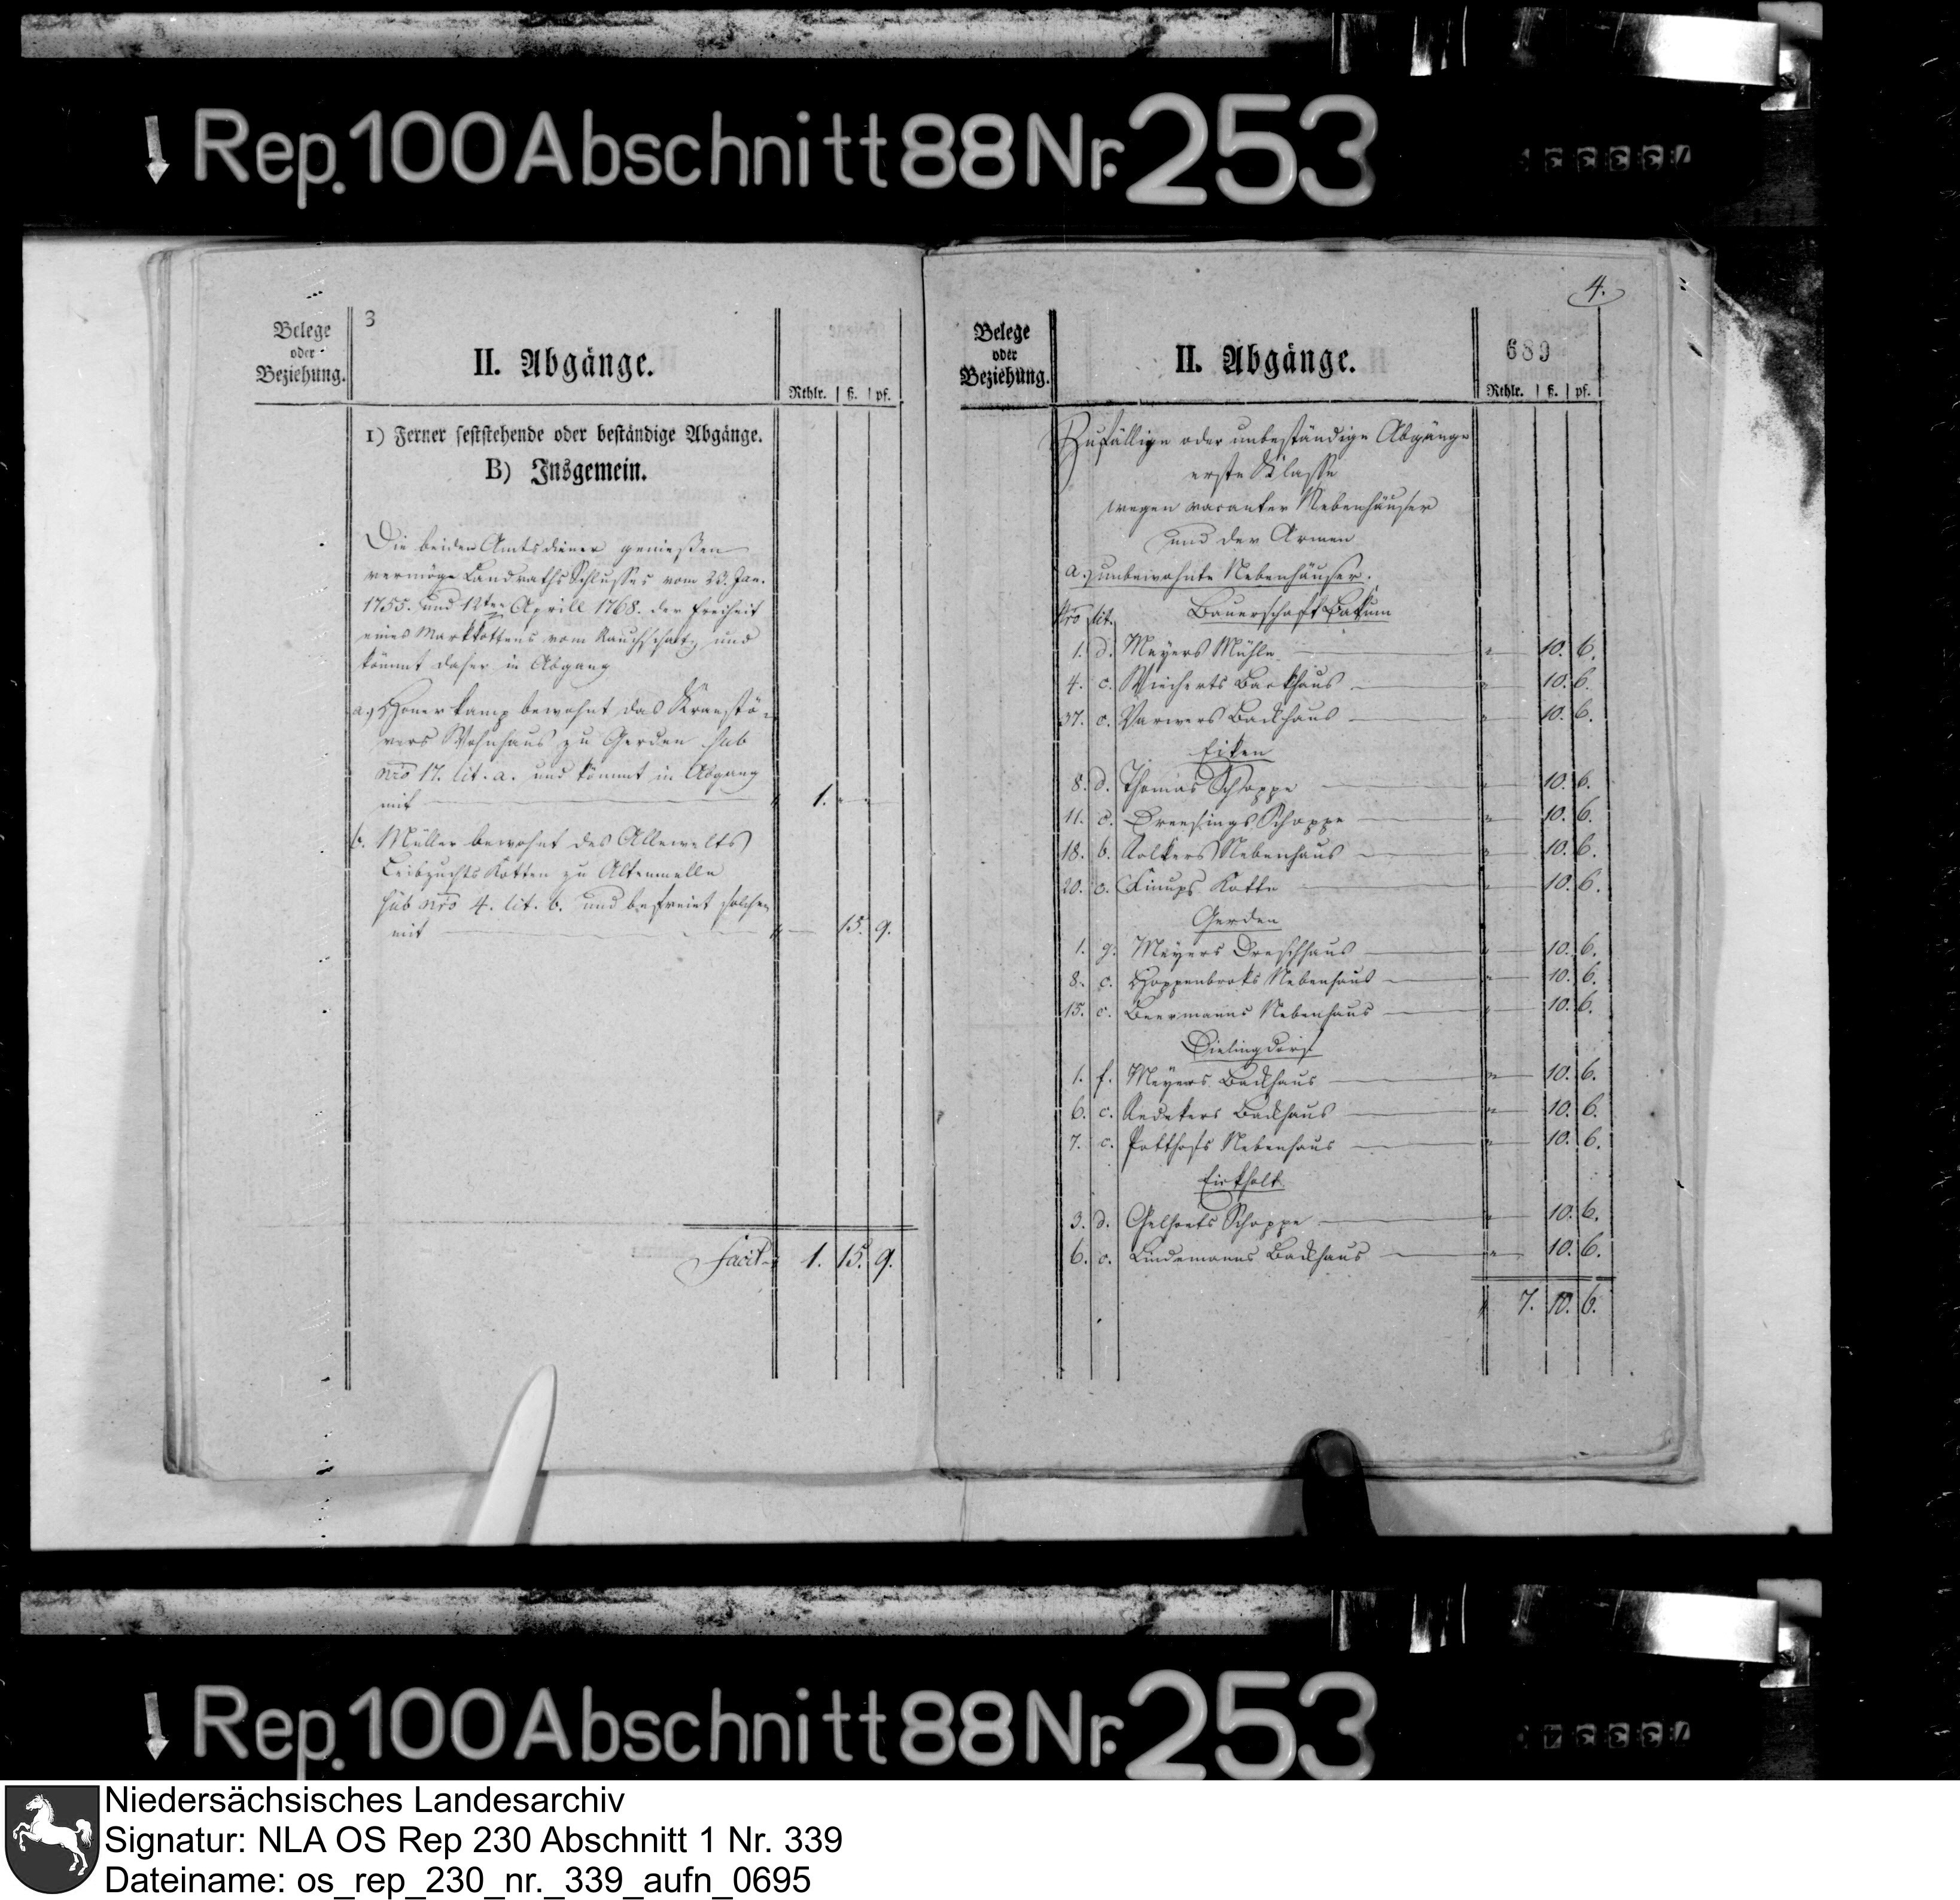 Rep. 100 Abschnitt 88 Nr. 253
3
Belege
oder
Beziehung.
II. Abgänge.
Rthlr. ß. pf.
1) Ferner feststehende oder beständige Abgänge.
B) Insgemein.
Die beiden Amtsdiener genießen
vermöge Landraths Schlusses vom 23. Jan.
1755. und 12ten Aprill 1768. der Freiheit
eines Marckkottens vom Rauchschatz und
kömmt daher in Abgang
a.) Honerkamp bewohnt das Kranstö-
vers Wohnhaus zu Gerden sub
nro 17. lit. a. und kömmt in Abgang
mit 1. " "
b. Müller bewohnt des Allewelts
Leibzuchts Kotten zu Altenmelle
sub nro 4. lit. b. und befreiet solchen
mit 15. 9.
facit 1. 15. 9.
4.
Belege
oder
Beziehung.
II. Abgänge.
689
Rthlr. ß. pf.
Zufällige oder unbeständige Abgänge
erste Klasse
wegen vacanter Nebenhäuser
und der Armen
a.) unbewohnte Nebenhäuser.
Nro lit. Bauerschaft Bakum
1. d. Meyers Mühle " 10. 6.
4. c. Wiecherts Backhaus " 10. 6.
37. c. Varwers Backhaus " 10. 6.
Eiken
8. d. Thomas Schoppe " 10. 6.
11. c. Dreesings Schoppe " 10. 6.
18. b. Nolkers Nebenhaus " 10. 6.
20. c. Kinups Kotte " 10. 6.
Gerden
1. g. Meyers Dreschhaus " 10. 6.
8. c. Hoppenbroks Nebenhaus " 10. 6.
15. c. Beermanns Nebenhaus " 10. 6.
Dielingdorf
1. f. Meyers Backhaus " 10. 6.
6. c. Redekers Backhaus " 10. 6.
7. c. Potthofs Nebenhaus " 10. 6.
Eickholt
3. d. Schoppe " 10. 6.
6. c. Lindemanns Backhaus " 10. 6.
7. 10. 6.
Rep. 100 Abschnitt 88 Nr. 253
Niedersächsisches Landesarchiv
Signatur: NLA OS Rep 230 Abschnitt 1 Nr. 339
Dateiname: os_rep_230_nr._339_aufn_0695